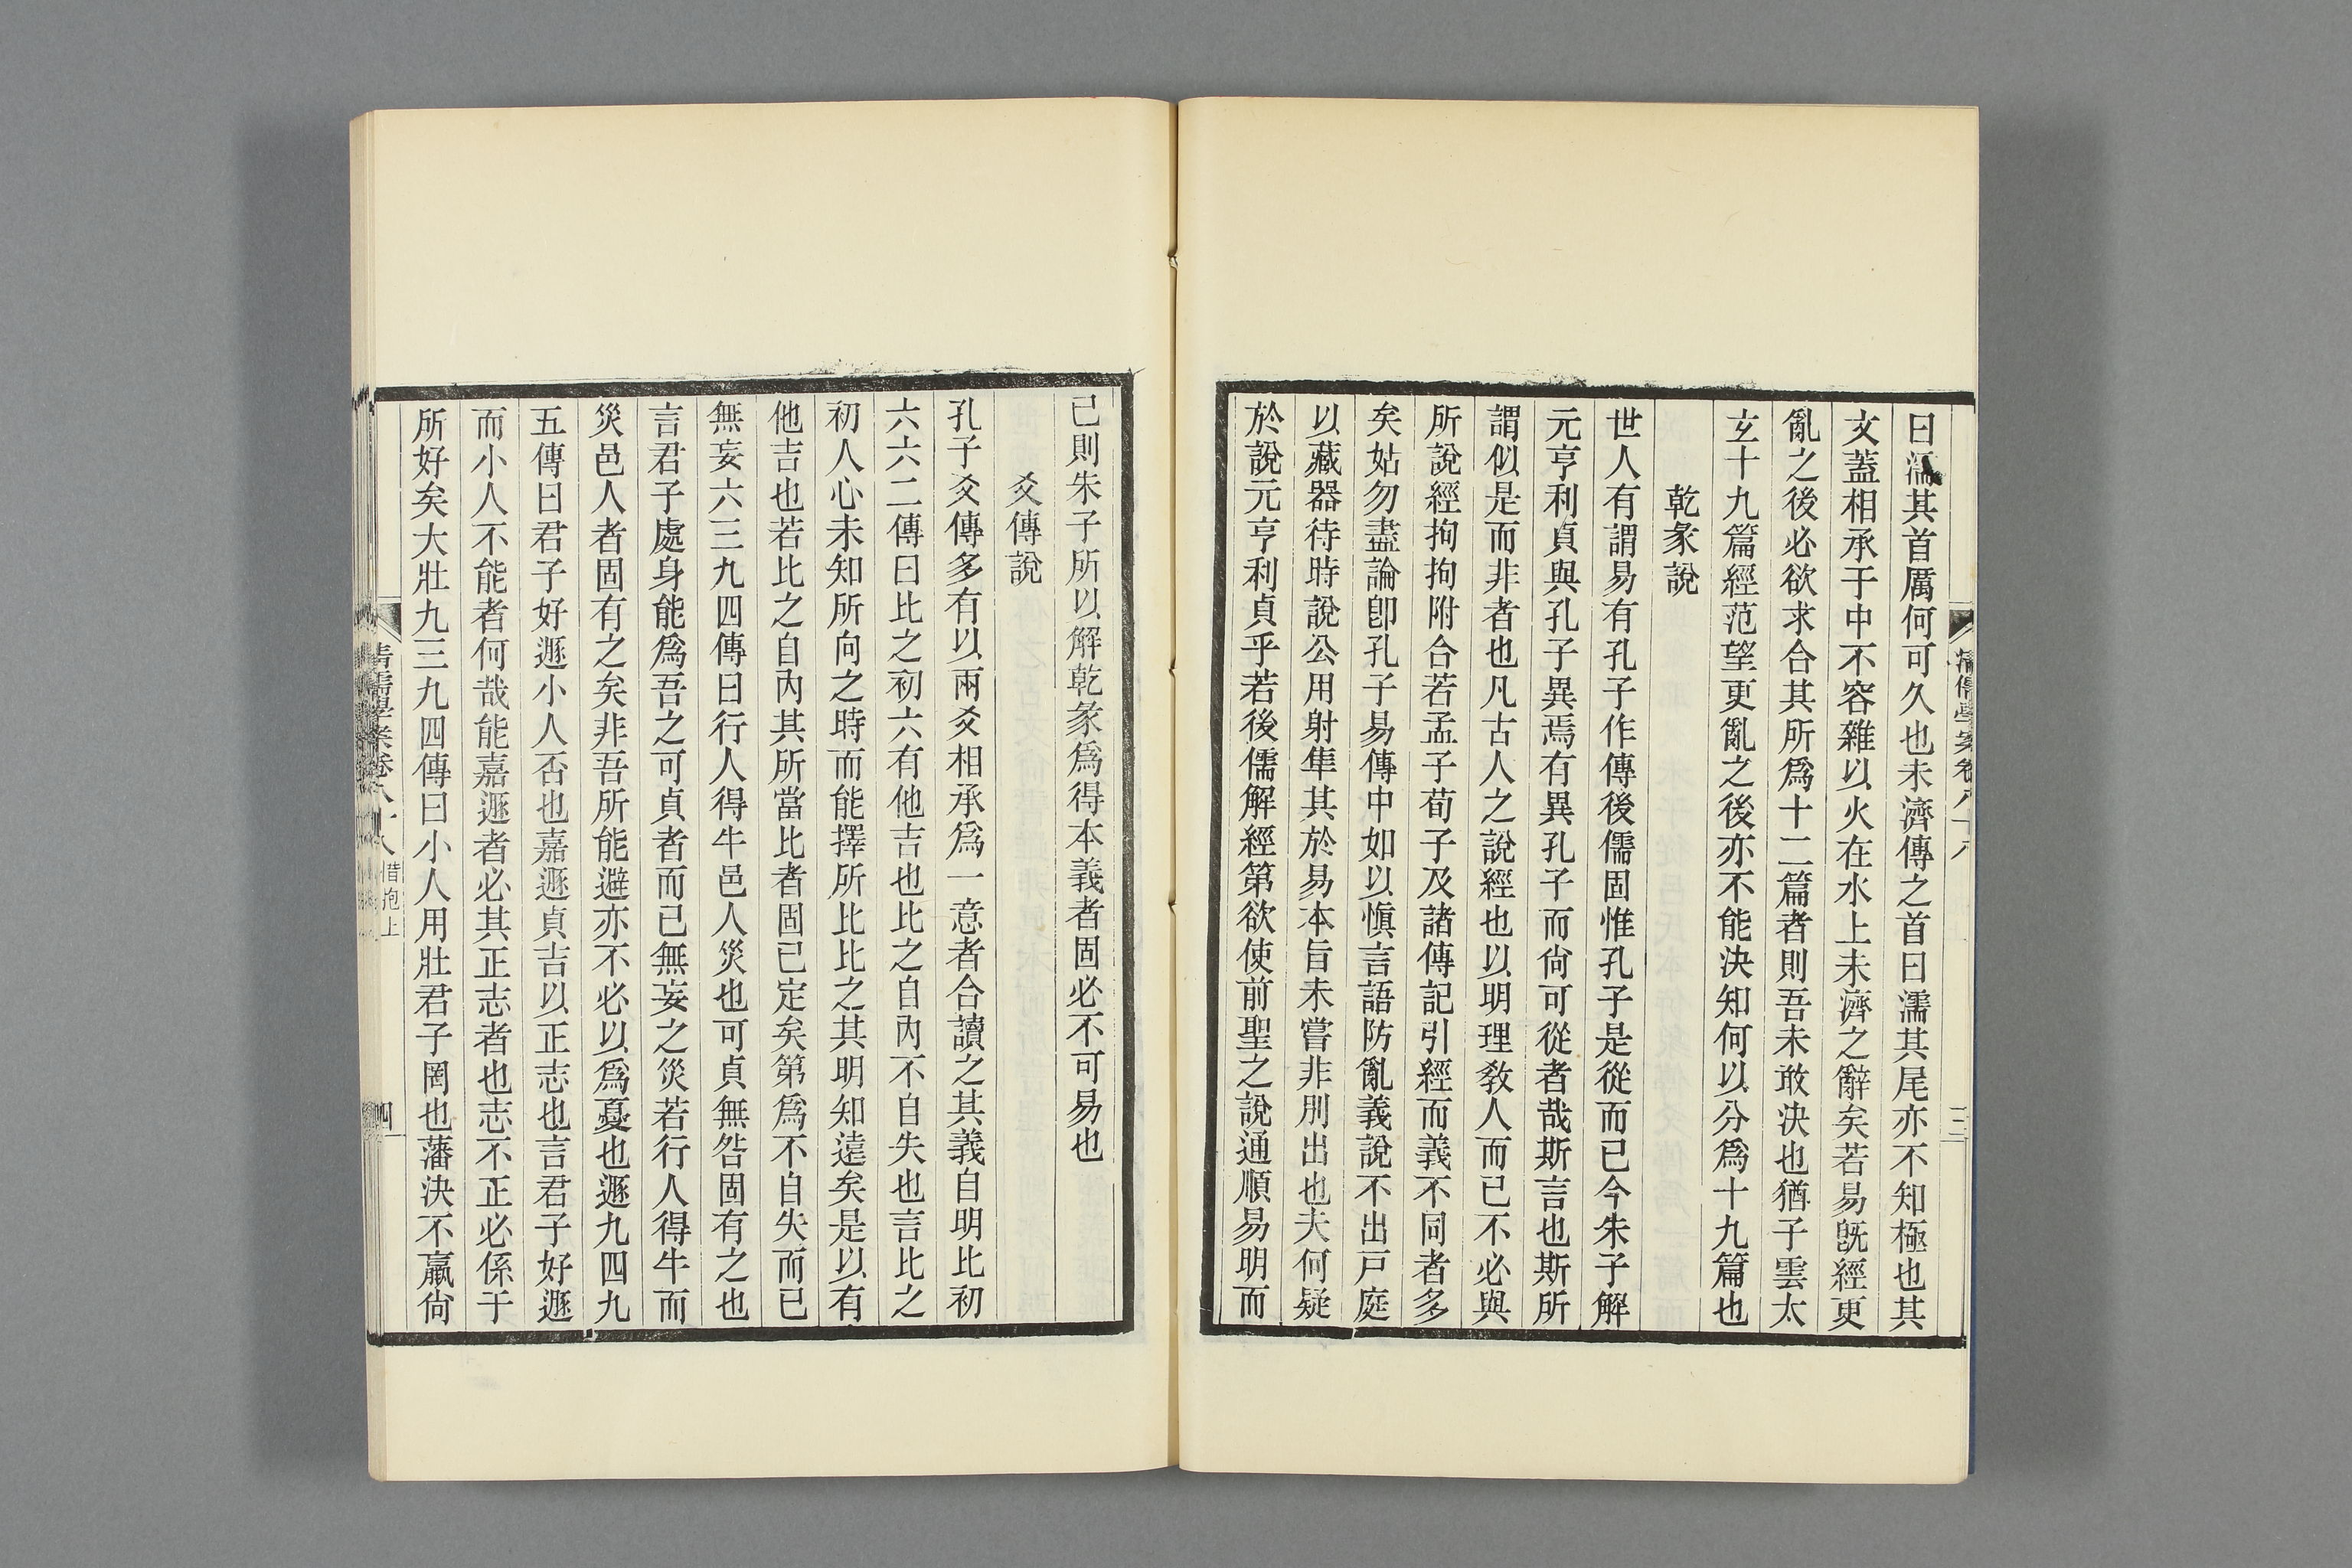 曰濡其首厲何可久也未濟傳之首曰濡其尾亦不知極也其
文蓋相承于中不容雜以火在水上未濟之辭矣若易旣經更
亂之後必欲求合其所爲十二篇者則吾未敢決也猶子雲太
玄十九篇經范望更亂之後亦不能決知何以分爲十九篇也
乾彖說
世人有謂易有孔子作傳後儒固惟孔子是從而已今朱子解
元亨利貞與孔子異焉有異孔子而尙可從者哉斯言也斯所
謂似是而非者也凡古人之說經也以明理敎人而已不必與
所說經拘拘附合若孟子荀子及諸傳記引經而義不同者多
矣姑勿盡論卽孔子易傳中如以愼言語防亂義說不出戸庭
以藏器待時說公用射隼其於易本旨未嘗非別出也夫何疑
於說元亨利貞乎若後儒解經第欲使前聖之說通順易明而
已則朱子所以解乾彖爲得本義者固必不可易也
爻傳說
孔子爻傳多有以兩爻相承爲一意者合讀之其義自明比初
六六二傳曰比之初六有他吉也比之自內不自失也言比之
初人心未知所向之時而能擇所比比之其明知遠矣是以有
他吉也若比之自內其所當比者固已定矣第爲不自失而已
無妄六三九四傳曰行人得牛邑人災也可貞無咎固有之也
言君子處身能爲吾之可貞者而已無妄之災若行人得牛而
災邑人者固有之矣非吾所能避亦不必以爲憂也遯九四九
五傳曰君子好遯小人否也嘉遯貞吉以正志也言君子好遯
而小人不能者何哉能嘉遯者必其正志者也志不正必係于
所好矣大壯九三九四傳曰小人用壯君子罔也藩決不羸尙
清儒學案卷八十八
惜抱上
四